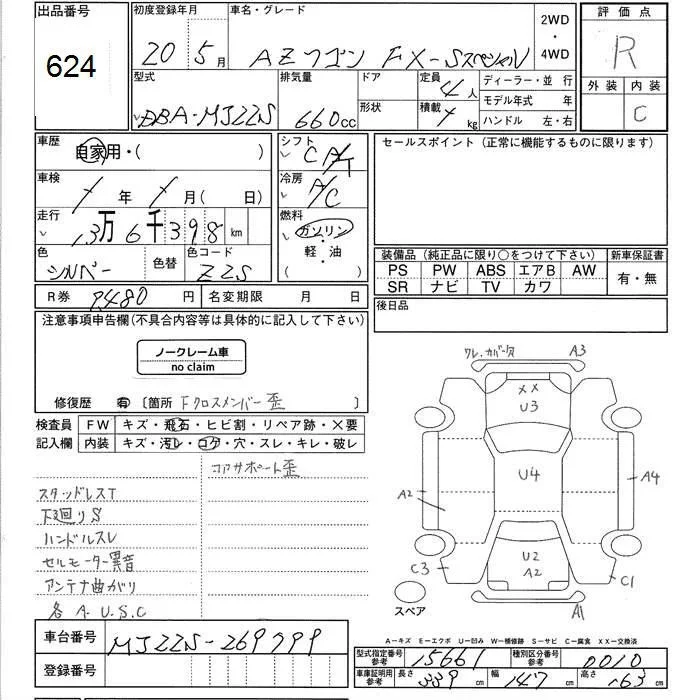 出品番号
624
初度登録年月
20 5月
車名・グレード
AZワゴン FX-Sスペシャル
2WD
・
4WD
評価点
R
外装 内装
C
型式
DBA-MJ22S
排気量
660cc
ドア
形状
定員 4人
積載 kg
ディーラー・並行
モデル年式 年
ハンドル 左・右
車歴
自家用・( )
シフト
CA/T
車検
年 月( 日)
冷房
A/C
走行
13万6千398km
燃料
ガソリン
・
軽・油
色
シルバー
色替
色コード
Z2S
R券 8480円
名変期限 月 日
セールスポイント(正常に機能するものに限ります)
装備品(純正品に限り○をつけて下さい)
新車保証書
PS PW ABS エアB AW
SR ナビ TV カワ
有・無
後日品
注意事項申告欄(不具合内容等は具体的に記入して下さい)
ノークレーム車
no claim
修復歴 有 〔箇所 Fクロスメンバー歪 〕
検査員
記入欄
FW キズ・飛石・ヒビ割・リペア跡・×要
内装 キズ・汚レ・コゲ・穴・スレ・キレ・破レ
コアサポート歪
スタッドレスT
下廻りS
ハンドルスレ
セルモーター異音
アンテナ曲がり
各A.U.S.C
ワレ.カバー欠
A3
XX
U3
U4
A4
A2
U2
A2
C3
C1
A1
スペア
A-キズ E-エクボ U-凹み W-補修跡 S-サビ C-腐食 XX-交換済
車台番号
MJ22S-269799
登録番号
型式指定番号
参考
15661
種別区分番号
参考
0010
車庫証明用
参考
長さ 339cm
幅 147cm
高さ 163cm